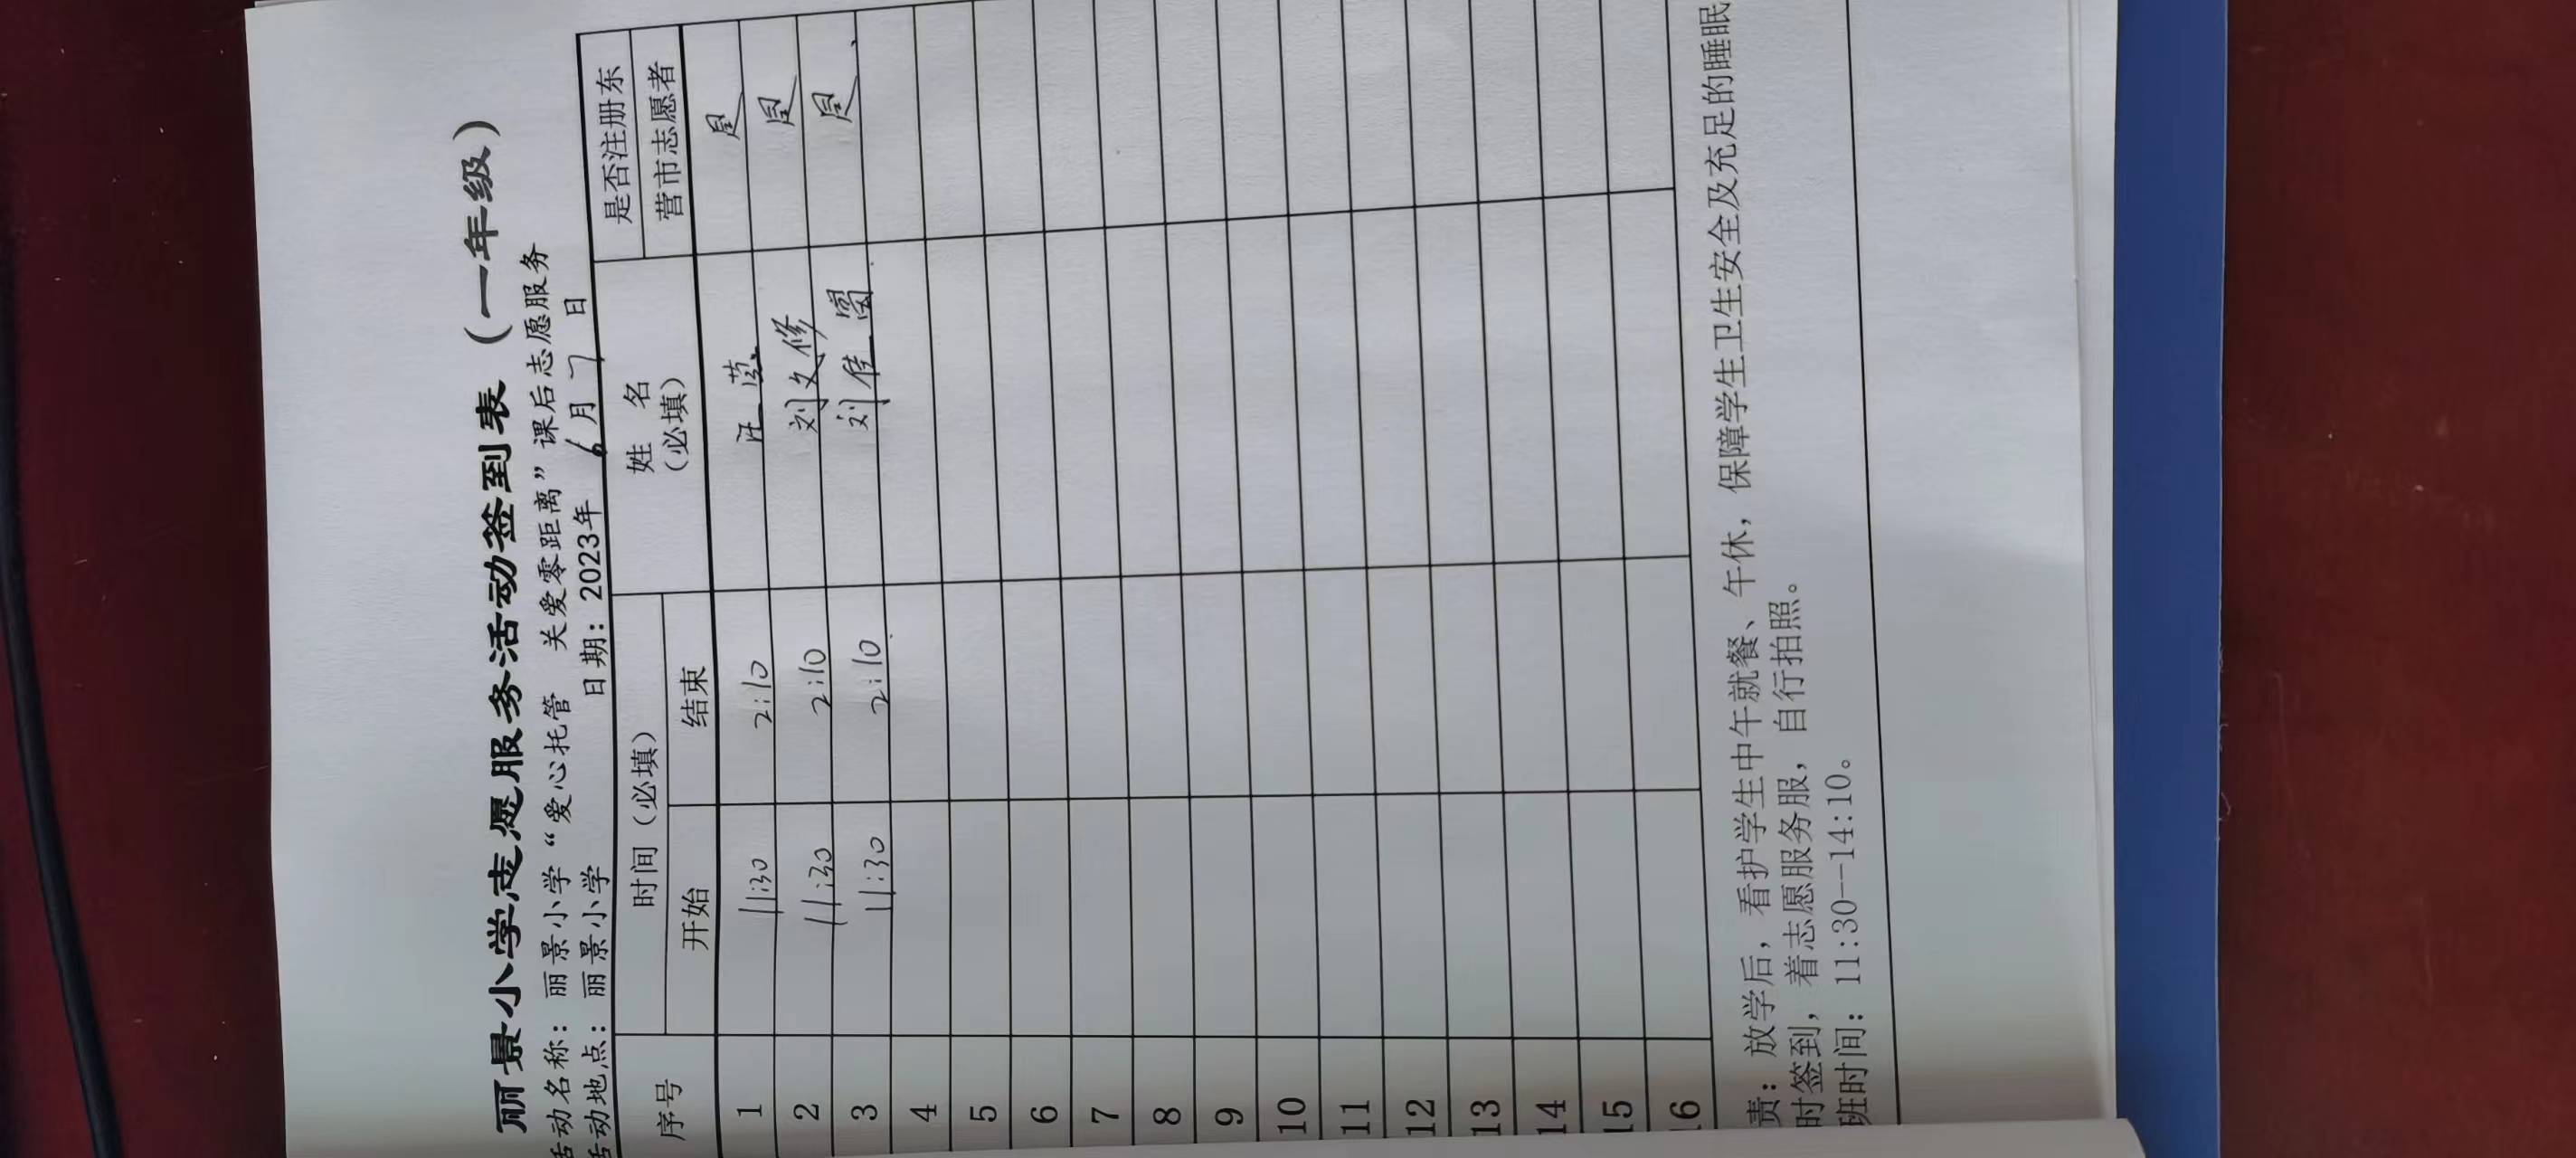 丽景小学志愿服务活动签到表（一年级）
活动名称：丽景小学“爱心托管 关爱零距离”课后志愿服务
活动地点：丽景小学 日期：2023年 6月 7日
序号 时间（必填） 姓 名（必填） 是否注册东营市志愿者
开始 结束
1 11:30 2:10 汪 是
2 11:30 2:10 刘文修 是
3 11:30 2:10 刘佳 是
4
5
6
7
8
9
10
11
12
13
14
15
16
责：放学后，看护学生中午就餐、午休，保障学生卫生安全及充足的睡眠
时签到，着志愿服务服，自行拍照。
班时间：11:30--14:10。